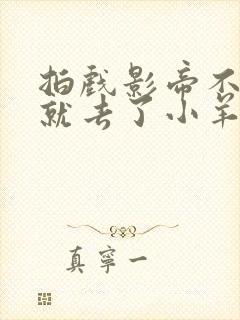 拍戏影帝不
就去了小羊
真宁一